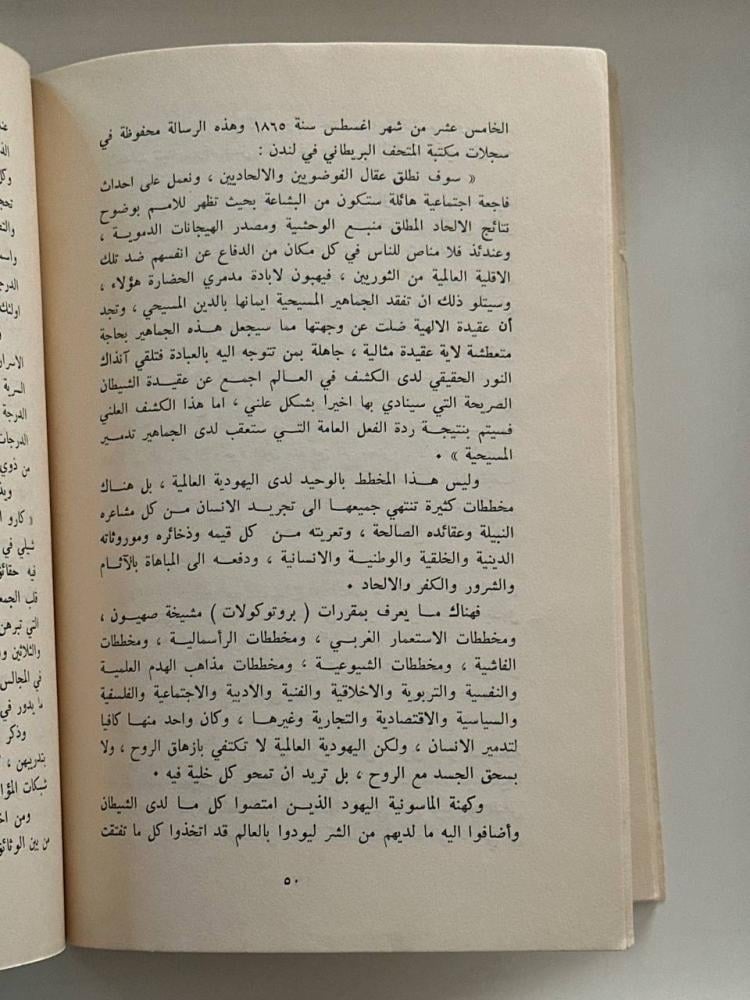 الخامس عشر من شهر اغسطس سنة ١٨٦٥ وهذه الرسالة محفوظة في
سجلات مكتبة المتحف البريطاني في لندن :
« سوف نطلق عقال الفوضويين والالحاديين ، ونعمل على احداث
فاجعة اجتماعية هائلة ستكون من البشاعة بحيث تظهر للامم بوضوح
نتائج الالحاد المطلق منبع الوحشية ومصدر الهيجانات الدموية ،
وعندئذ فلا مناص للناس في كل مكان من الدفاع عن انفسهم ضد تلك
الاقلية العالمية من الثوريين ، فيهبون لابادة مدمري الحضارة هؤلاء ،
وسيتلو ذلك ان تفقد الجماهير المسيحية ايمانها بالدين المسيحي ، وتجد
أن عقيدة الالهية ضلت عن وجهتها مما سيجعل هذه الجماهير بحاجة
متعطشة لاية عقيدة مثالية ، جاهلة بمن تتوجه اليه بالعبادة فتلقي آنذاك
النور الحقيقي لدى الكشف في العالم اجمع عن عقيدة الشيطان
الصريحة التي سينادي بها اخيرا بشكل علني ، اما هذا الكشف العلني
فسيتم بنتيجة ردة الفعل العامة التي ستعقب لدى الجماهير تدمير
المسيحية » .
وليس هذا المخطط بالوحيد لدى اليهودية العالمية ، بل هناك
مخططات كثيرة تنتهي جميعها الى تجريد الانسان من كل مشاعره
النبيلة وعقائده الصالحة ، وتعريته من كل قيمه وذخائره وموروثاته
الدينية والخلقية والوطنية والانسانية ، ودفعه الى المباهاة بالآثام
والشرور والكفر والالحاد .
فهناك ما يعرف بمقررات ( بروتوكولات ) مشيخة صهيون ،
ومخططات الاستعمار الغربي ، ومخططات الرأسمالية ، ومخططات
الفاشية ، ومخططات الشيوعية ، ومخططات مذاهب الهدم العلمية
والنفسية والتربوية والاخلاقية والفنية والادبية والاجتماعية والفلسفية
والسياسية والاقتصادية والتجارية وغيرها ، وكان واحد منها كافيا
لتدمير الانسان ، ولكن اليهودية العالمية لا تكتفي بازهاق الروح ، ولا
بسحق الجسد مع الروح ، بل تريد ان تمحو كل خلية فيه .
وكهنة الماسونية اليهود الذين امتصوا كل ما لدى الشيطان
وأضافوا اليه ما لديهم من الشر ليودوا بالعالم قد اتخذوا كل ما تفتقت
٥٠